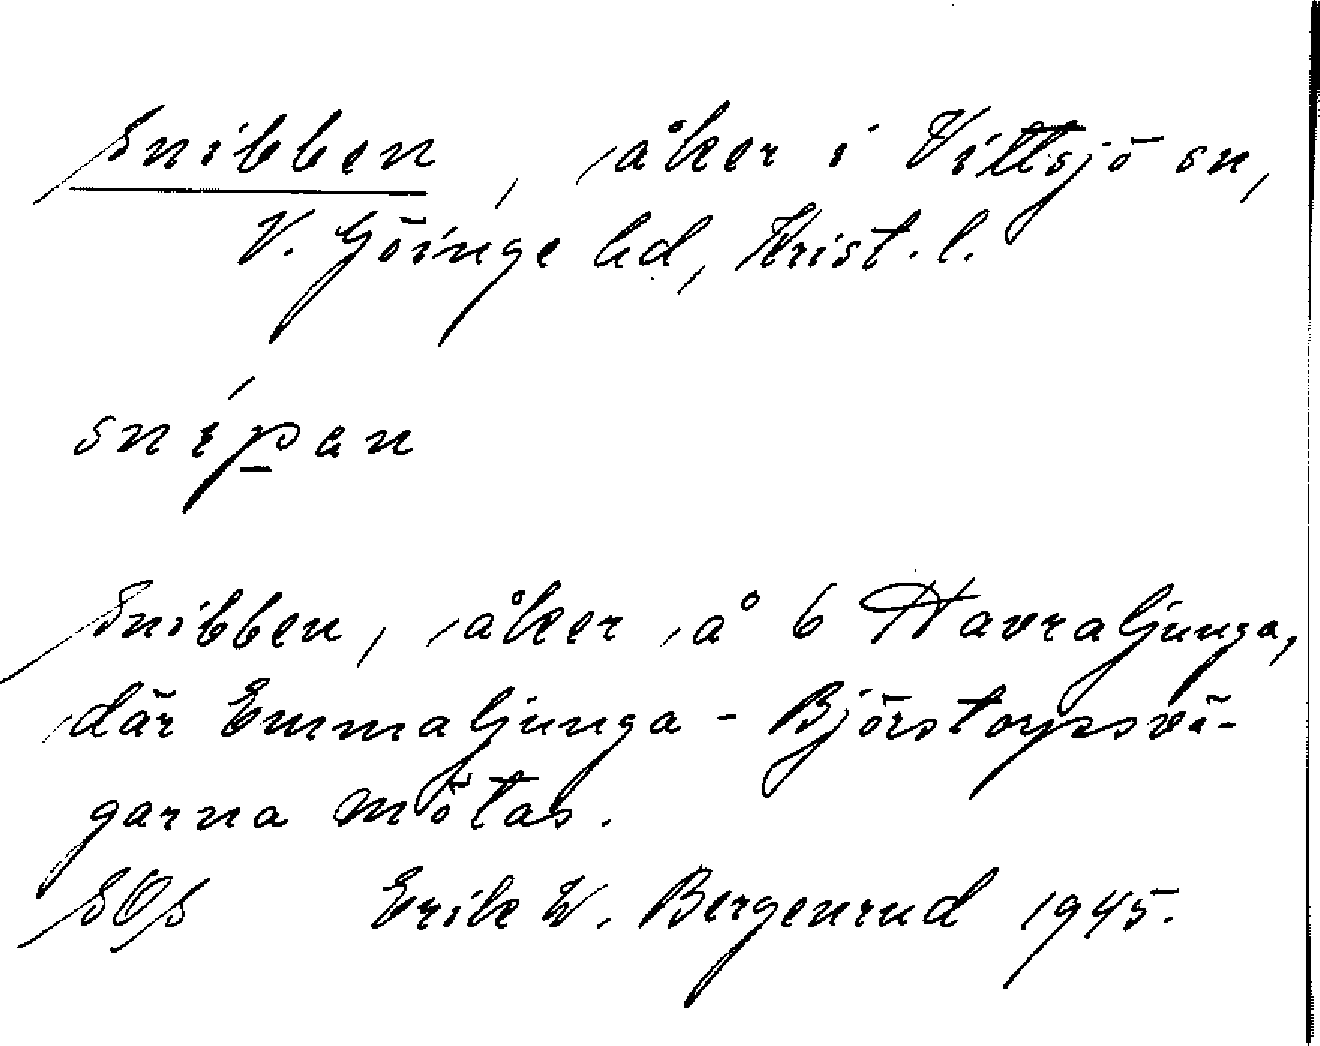 Snibben, åker i Vittsjö sn,
V. Göinge hd, Krist. l.
snípan
Snibben, åker å 6 Havraljunga,
där Emmaljunga - Björstorpsvä-
garna mötas.
SOS Erik W. Bergenrud 1945.